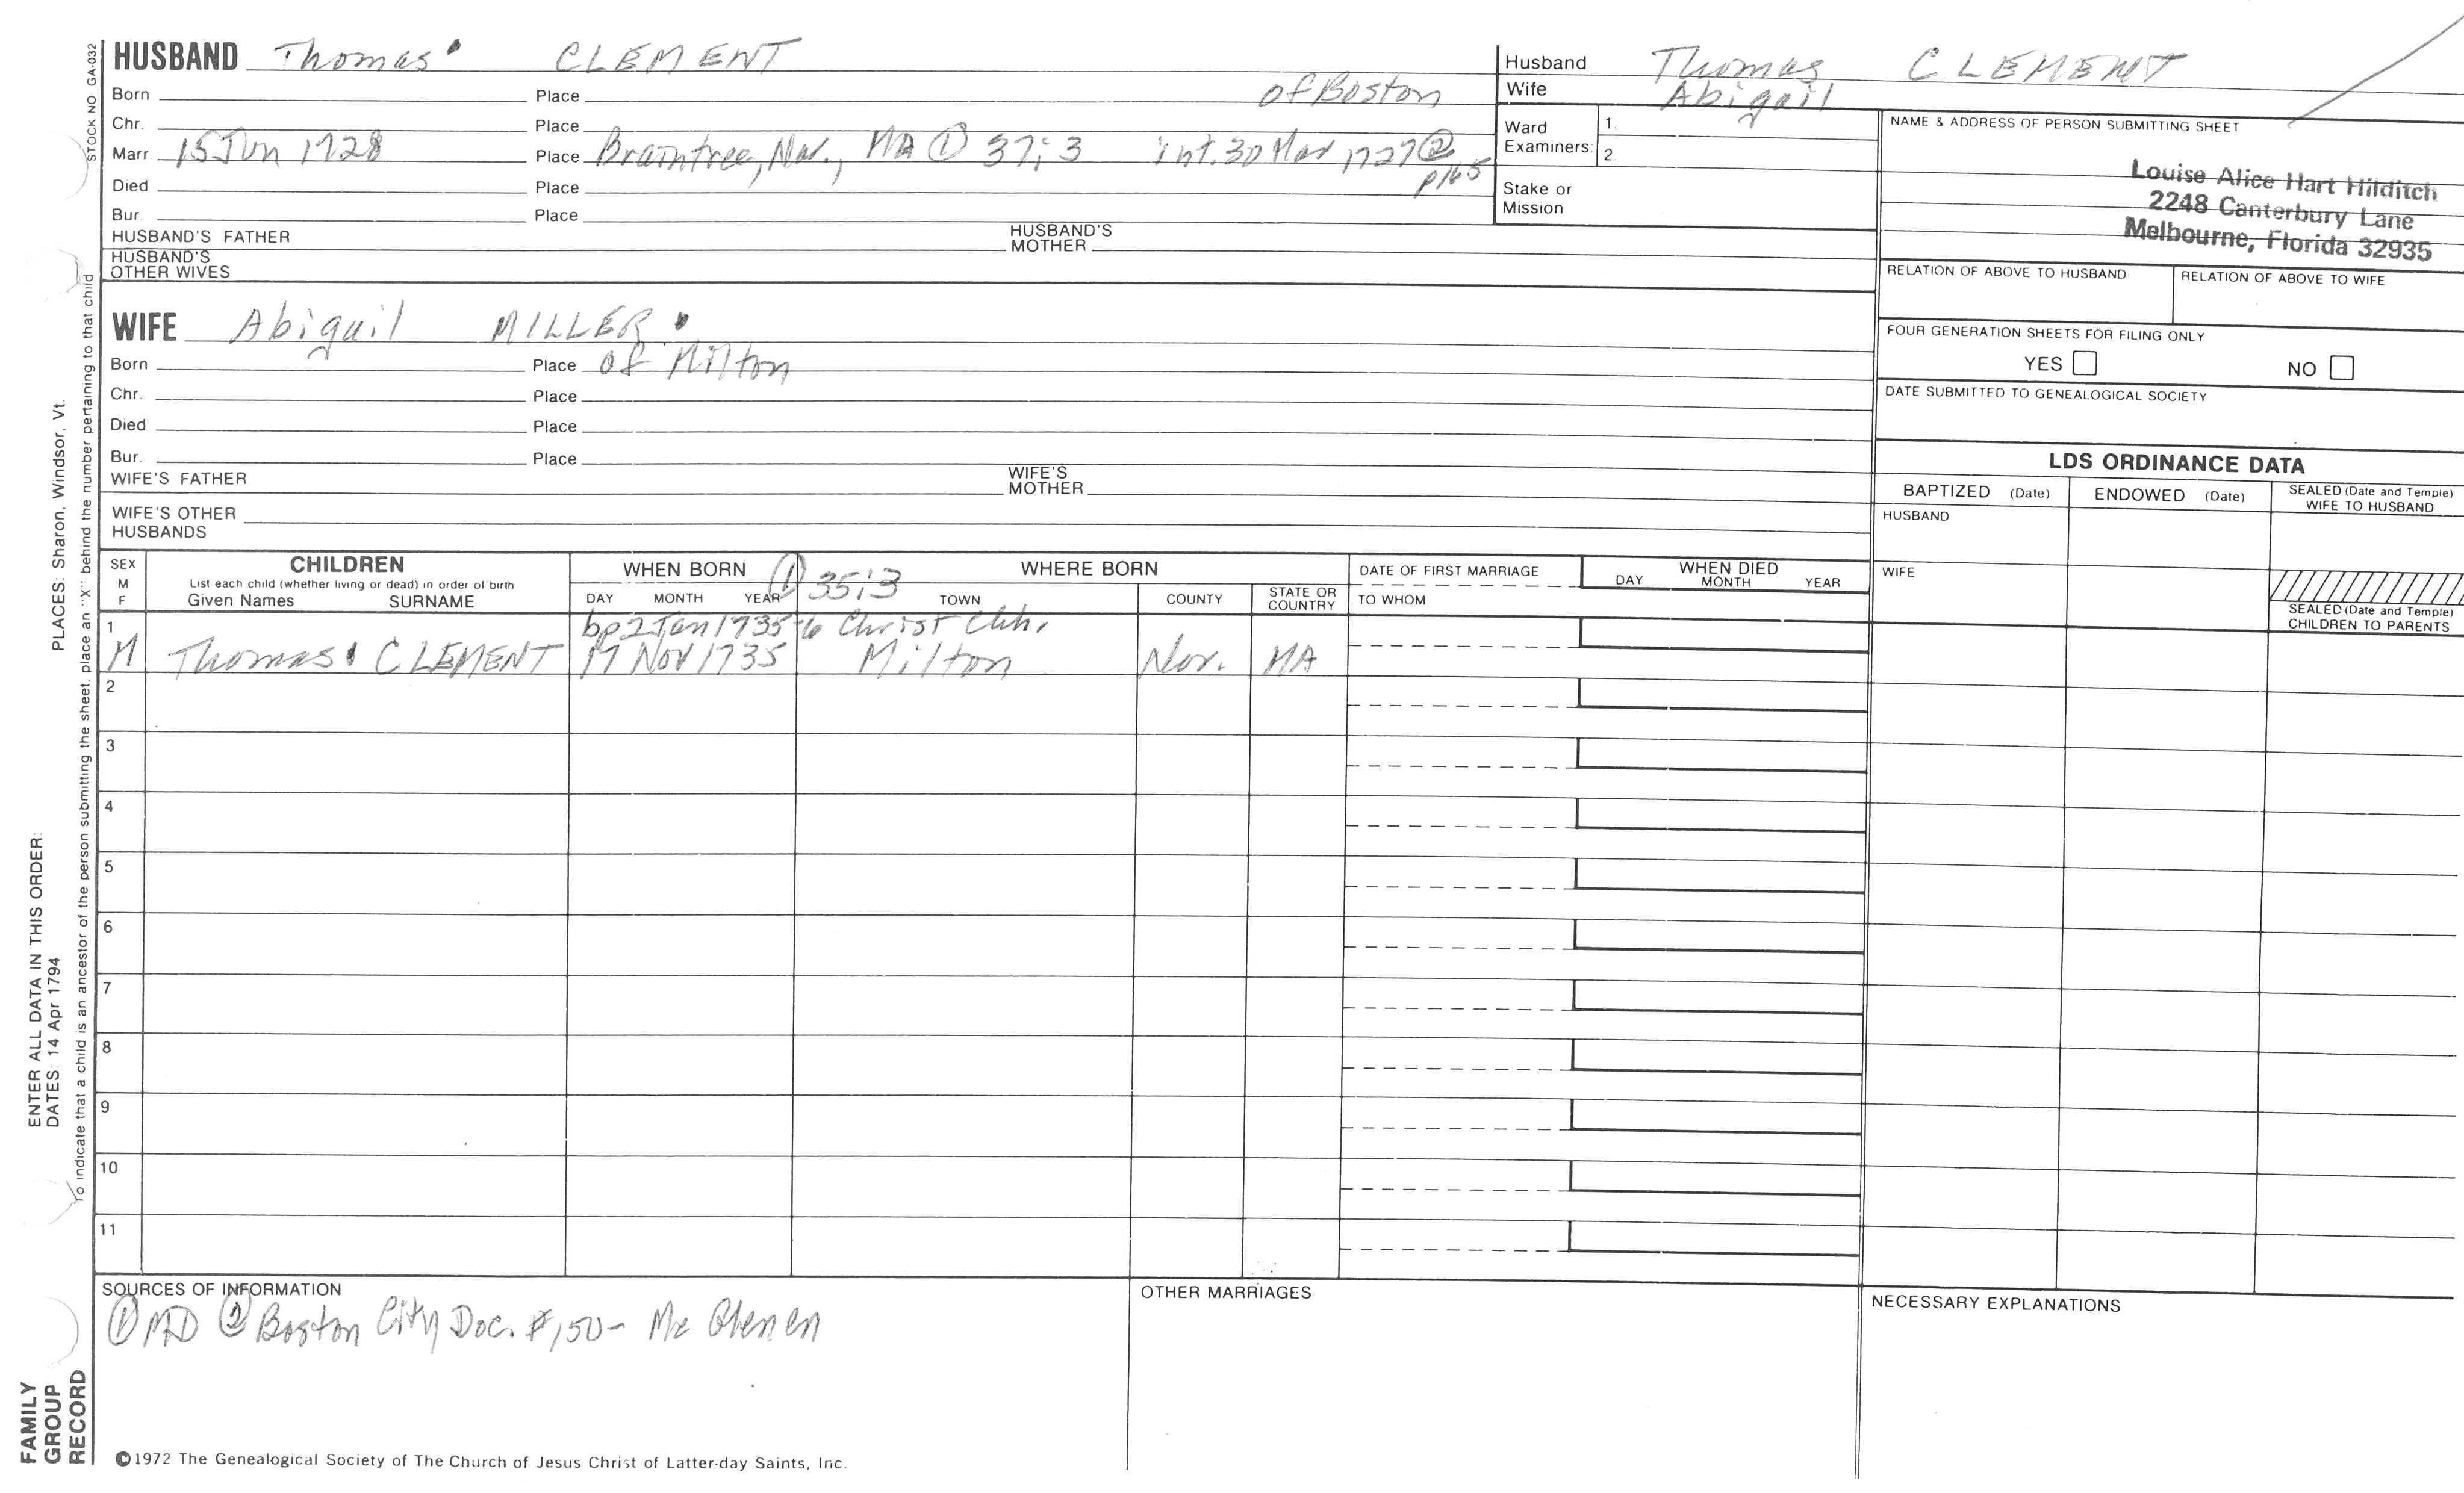 HUSBAND Thomas CLEMENT
Born Place of Boston
Chr. Place
Marr. 15 Jun 1728 Place Braintree, Nor., MA ① 37:3 int. 30 Mar 1727 ② p165
Died Place
Bur. Place
HUSBAND'S FATHER HUSBAND'S MOTHER
HUSBAND'S OTHER WIVES
WIFE Abigail MILLER
Born Place of Milton
Chr. Place
Died Place
Bur. Place
WIFE'S FATHER WIFE'S MOTHER
WIFE'S OTHER HUSBANDS
Husband Thomas CLEMENT
Wife Abigail
Ward Examiners: 1.
2.
Stake or Mission
NAME & ADDRESS OF PERSON SUBMITTING SHEET
Louise Alice Hart Hilditch
2248 Canterbury Lane
Melbourne, Florida 32935
RELATION OF ABOVE TO HUSBAND RELATION OF ABOVE TO WIFE
FOUR GENERATION SHEETS FOR FILING ONLY
YES NO
DATE SUBMITTED TO GENEALOGICAL SOCIETY
LDS ORDINANCE DATA
BAPTIZED (Date) ENDOWED (Date) SEALED (Date and Temple) WIFE TO HUSBAND
HUSBAND
WIFE
SEALED (Date and Temple) CHILDREN TO PARENTS
SEX M F CHILDREN
List each child (whether living or dead) in order of birth
Given Names SURNAME
WHEN BORN ① 35:3 WHERE BORN
DAY MONTH YEAR TOWN COUNTY STATE OR COUNTRY
DATE OF FIRST MARRIAGE
TO WHOM
WHEN DIED
DAY MONTH YEAR
1 bp 2 Jan 1735-6 Christ Chh.
M Thomas CLEMENT 17 Nov 1735 Milton Nor. MA
2
3
4
5
6
7
8
9
10
11
SOURCES OF INFORMATION
① MD ② Boston City Doc. #150-
OTHER MARRIAGES
NECESSARY EXPLANATIONS
©1972 The Genealogical Society of The Church of Jesus Christ of Latter-day Saints, Inc.
STOCK NO GA-032
To indicate that a child is an ancestor of the person submitting the sheet, place an "X" behind the number pertaining to that child
ENTER ALL DATA IN THIS ORDER:
DATES: 14 Apr 1794 PLACES: Sharon, Windsor, Vt.
FAMILY
GROUP
RECORD